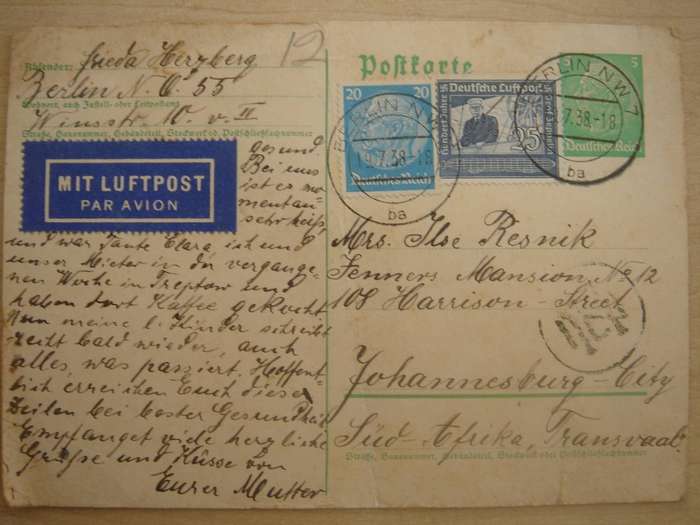 Absender: Frieda Herzberg
Berlin N. O. 55
Wohnort, auch Zustell- oder Leitpostamt
Winsstr. 10. v. II
Straße, Hausnummer, Gebäudeteil, Stockwerk od. Postschließfachnummer
12
MIT LUFTPOST
PAR AVION
gesund.
Bei uns
ist er mo=
mentan
sehr heiß,
und war Tante Clara, ich und
unser Mieter in der vergange=
nen Woche in Treptow und
haben dort Kaffee gekocht
Nun meine l. Kinder schreibt
recht bald wieder, auch
alles, was passiert. Hoffent=
lich erreichen Euch diese
Zeilen bei bester Gesundheit
Empfanget viele herzliche
Grüße und Küsse von
Eurer Mutter
Postkarte
20 20
Deutsches Reich
Deutsche Luftpost
Hundert Jahre
Graf Zeppelin
25
5
Deutsches Reich
BERLIN NW 7
19.7.38-18
ba
BERLIN NW 7
.7.38-18
ba
Mrs. Ilse Resnik
Jenners Mansion No 12
108 Harrison-Street
Johannesburg-City
Süd-Afrika, Transvaal.
Straße, Hausnummer, Gebäudeteil, Stockwerk oder Postschließfachnummer